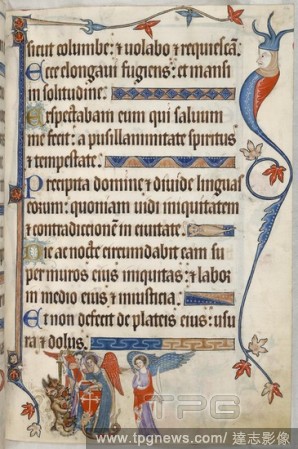 sicut columbe: ⁊ uolabo ⁊ requiescã.
Ecce elongaui fugiens: et mansi
in solitudine.
Expectabam eum qui saluum
me fecit: a pusillanimitate spiritus
⁊ tempestate.
Precipita domine ⁊ diuide linguas
eorum: quoniam uidi iniquitatem
⁊ contradictionem in ciuitate.
Die ac nocte circumdabit eam su
per muros eius iniquitas: ⁊ labor
in medio eius ⁊ iniusticia.
Et non defecit de plateis eius: usu
ra ⁊ dolus.
TPG
www.tpgnews.com/ 達志影像